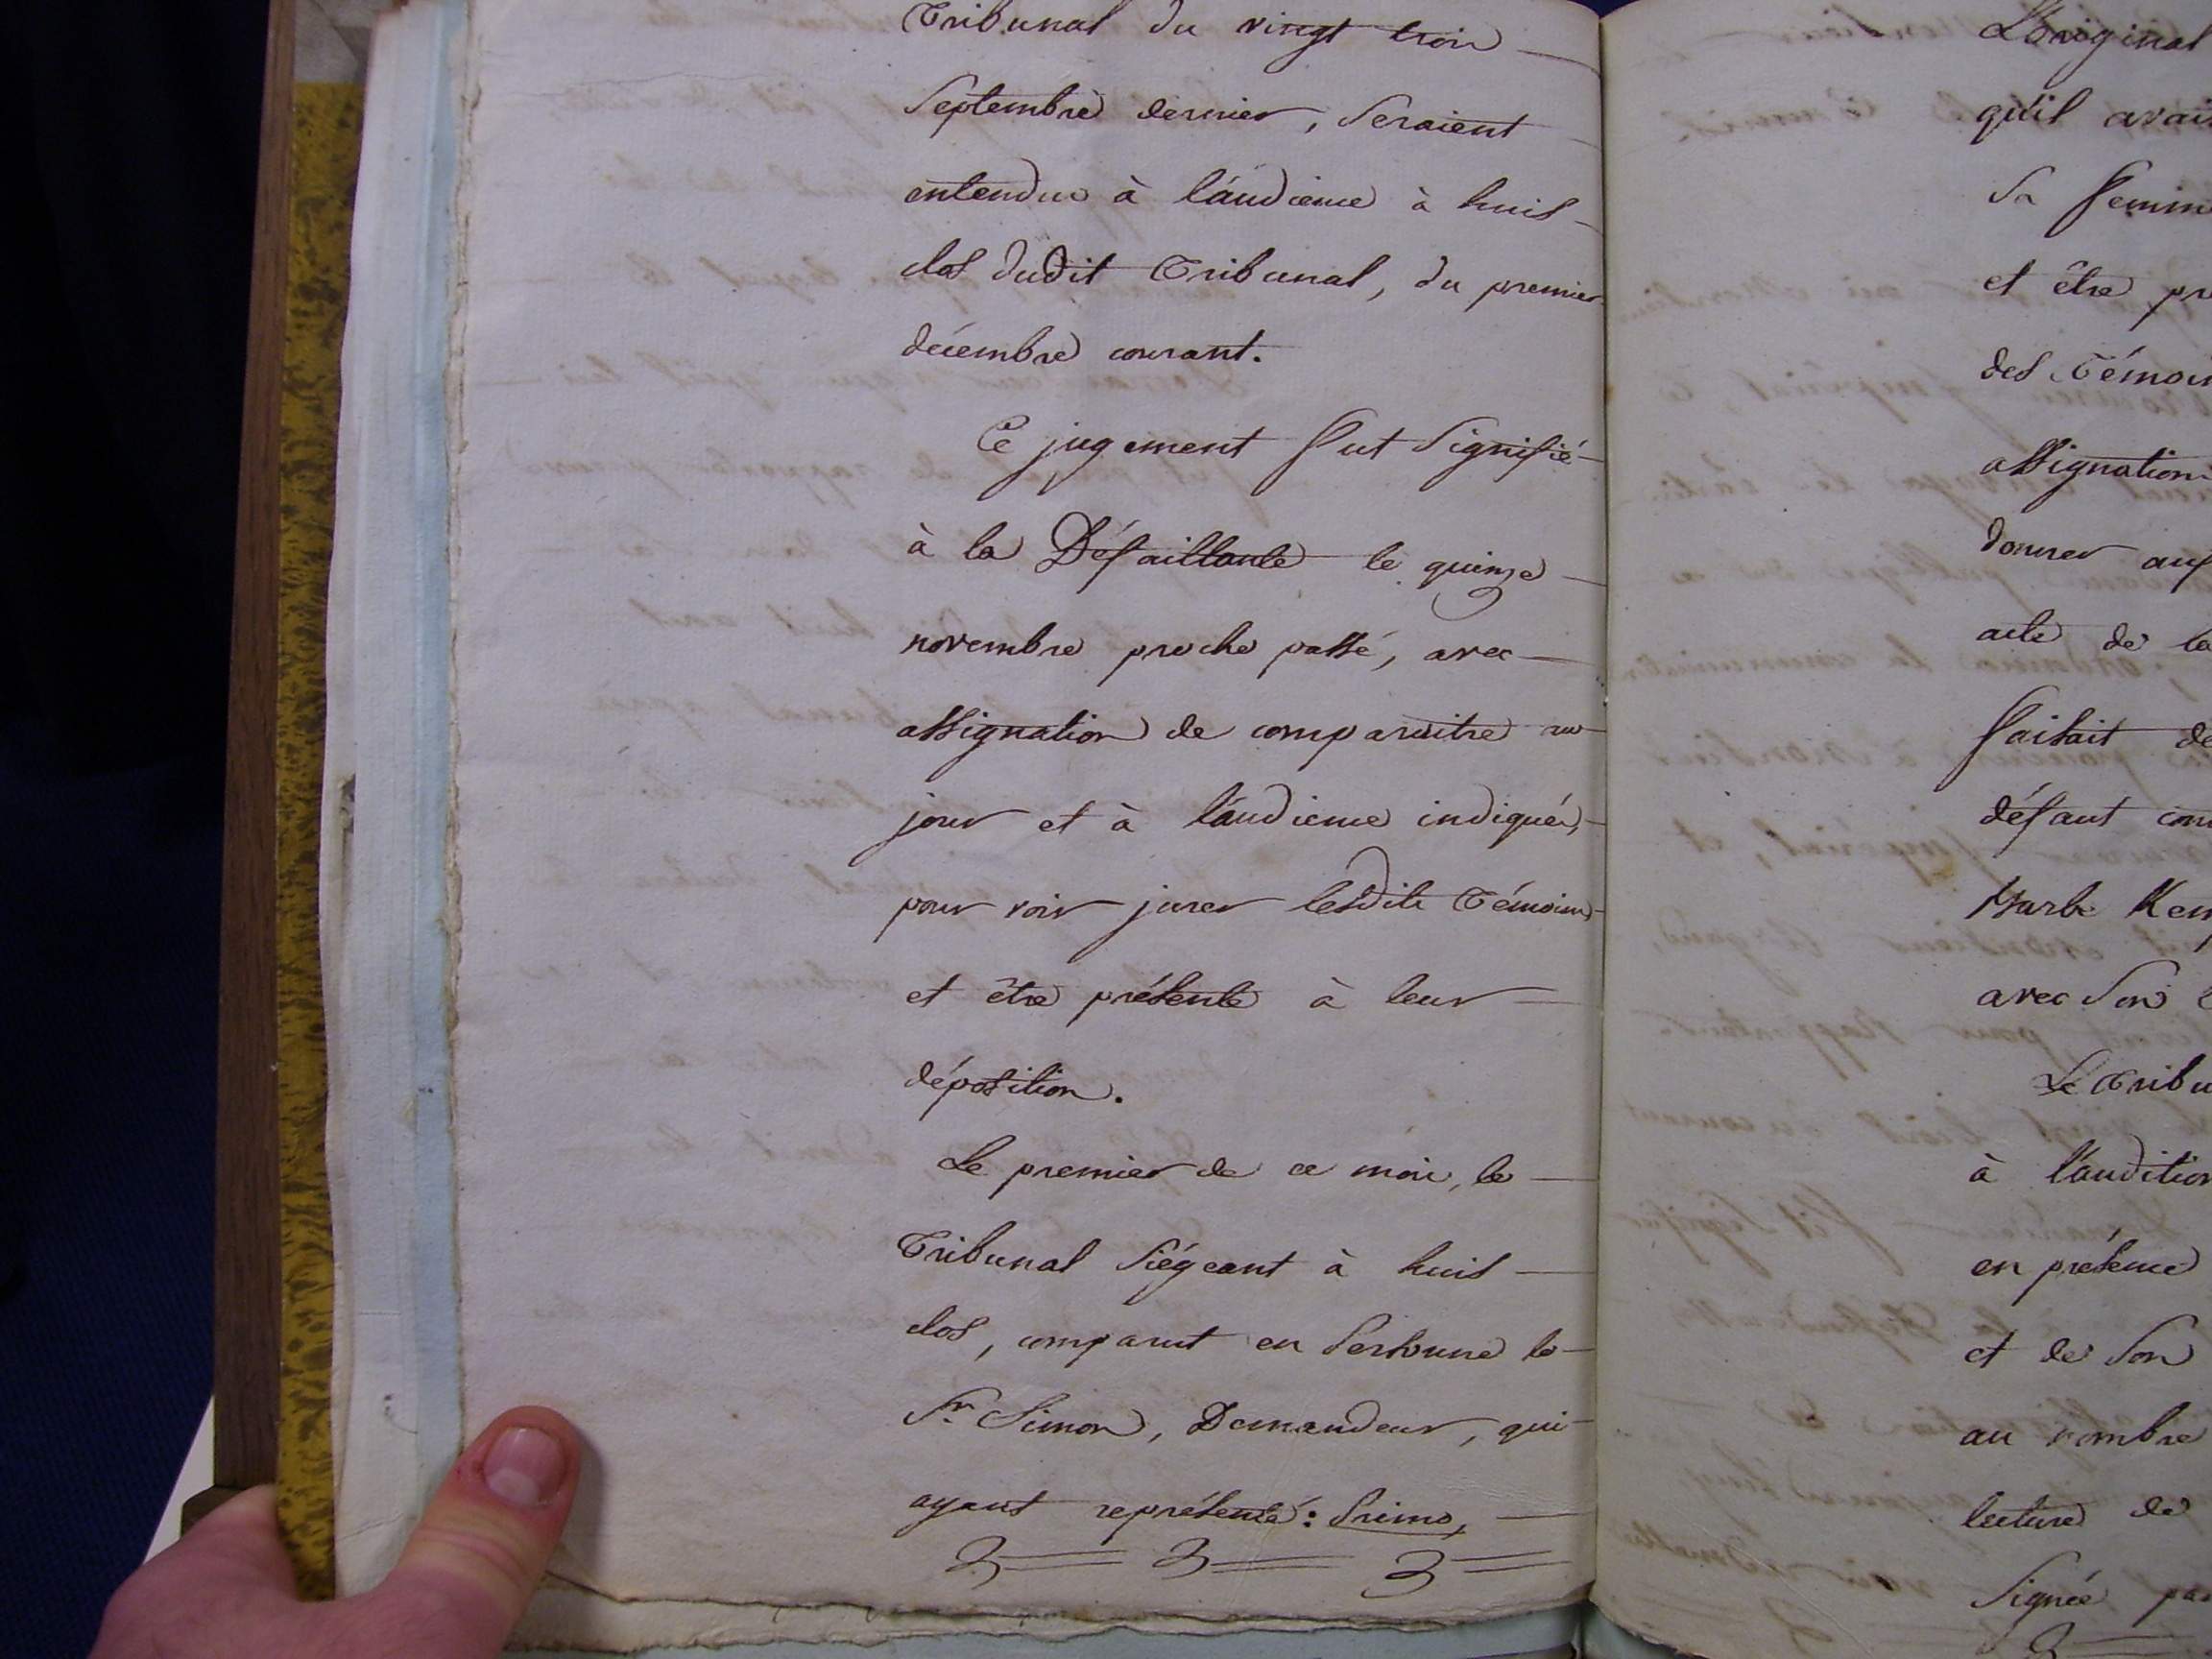 Tribunal du vingt trois
Septembre dernier, Seraient
entendus à l'audience à huis
clos dudit Tribunal, du premier
décembre courant.
Ce jugement fut Signifié
à la Défaillante le quinze
novembre proche passé, avec
assignation de comparaitre au
jour et à l'audience indiqués,
pour voir jurer lesdits Témoins
et être présente à leur
déposition.
Le premier de ce mois, le
Tribunal Siégeant à huis
clos, comparut en Personne le
Sr. Simon, Demandeur, qui
ayant représenté: Primo,
L'original
qu'il avait
Sa femme
et être pr
des Témoin
assignation
donner
acte de la
faisait de
défaut con
Barbe Kem
avec Son
Le Tribu
à l'audition
en présence
et de Son
au nombre
lecture de
Signée pa